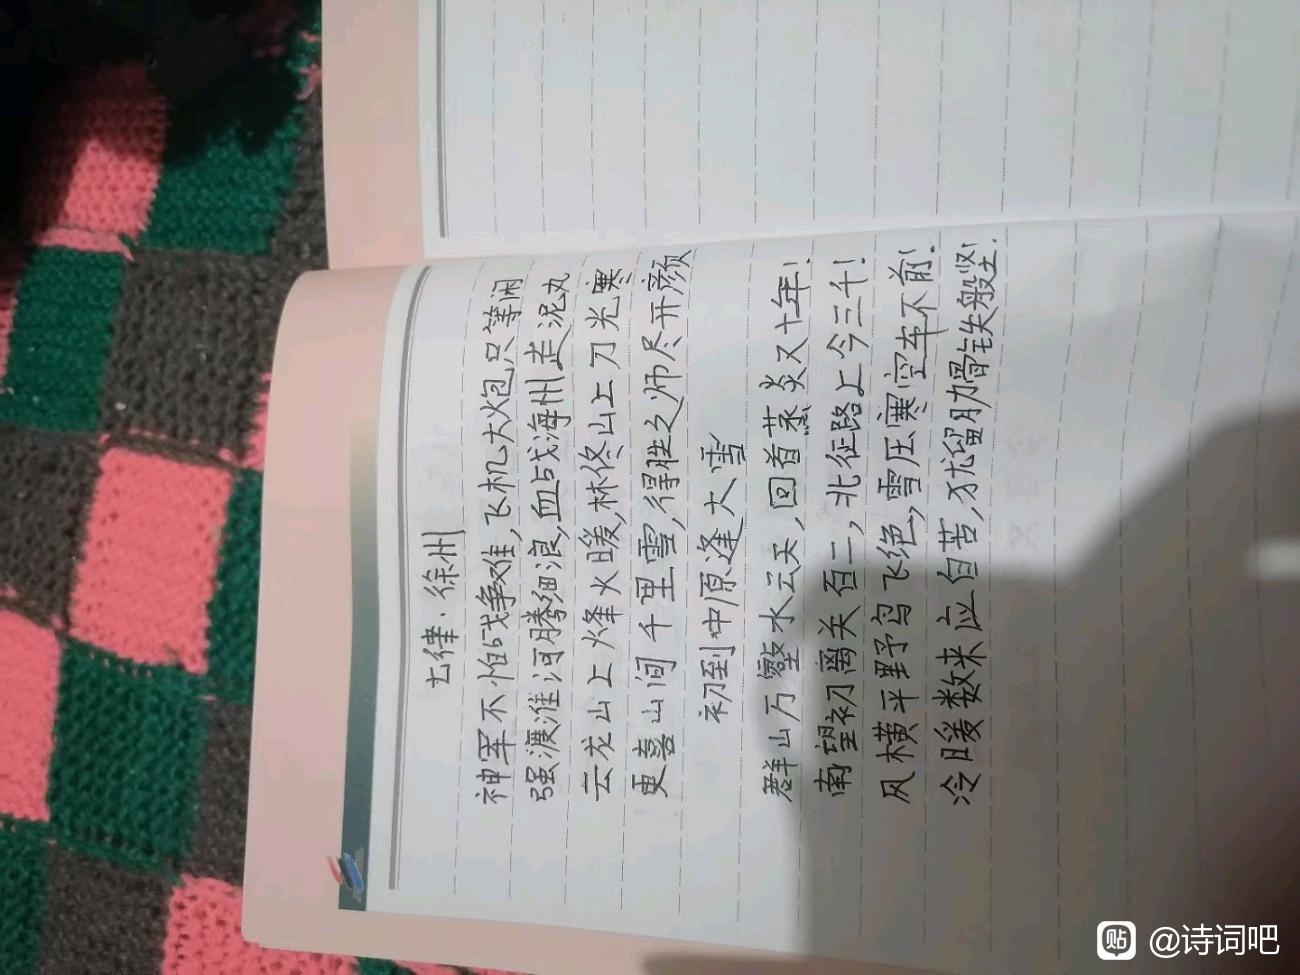 七律·徐州
神军不怕战争难,飞机大炮只等闲
强渡淮河腾细浪,血战海州走泥丸
云龙山上烽火暖,林佟山上刀光寒
更喜山间千里雪,得胜之师尽开颜
初到中原逢大雪
群山万壑水云天,回首蒸炎又十年!
南望初离关百二,北征路上今三千!
风横平野鸟飞绝,雪压寒空车不前!
冷暖数来应自苦,犹留肋骨铁般坚!
贴 @诗词吧